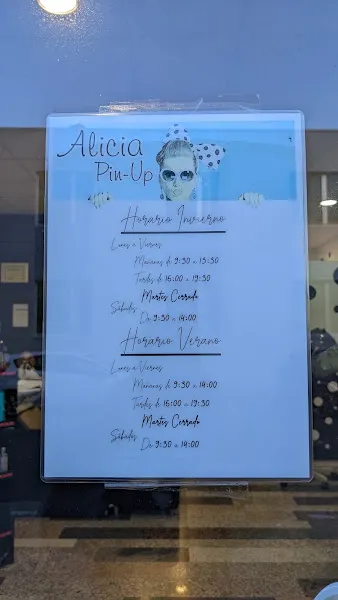 Alicia
Pin-Up
Horario Invierno
Lunes a Viernes
Mañanas de 9:30 a 13:30
Tardes de 16:00 a 19:30
Martes Cerrado
Sábados
De 9:30 a 14:00
Horario Verano
Lunes a Viernes
Mañanas de 9:30 a 14:00
Tardes de 16:00 a 19:30
Martes Cerrado
Sábados
De 9:30 a 14:00